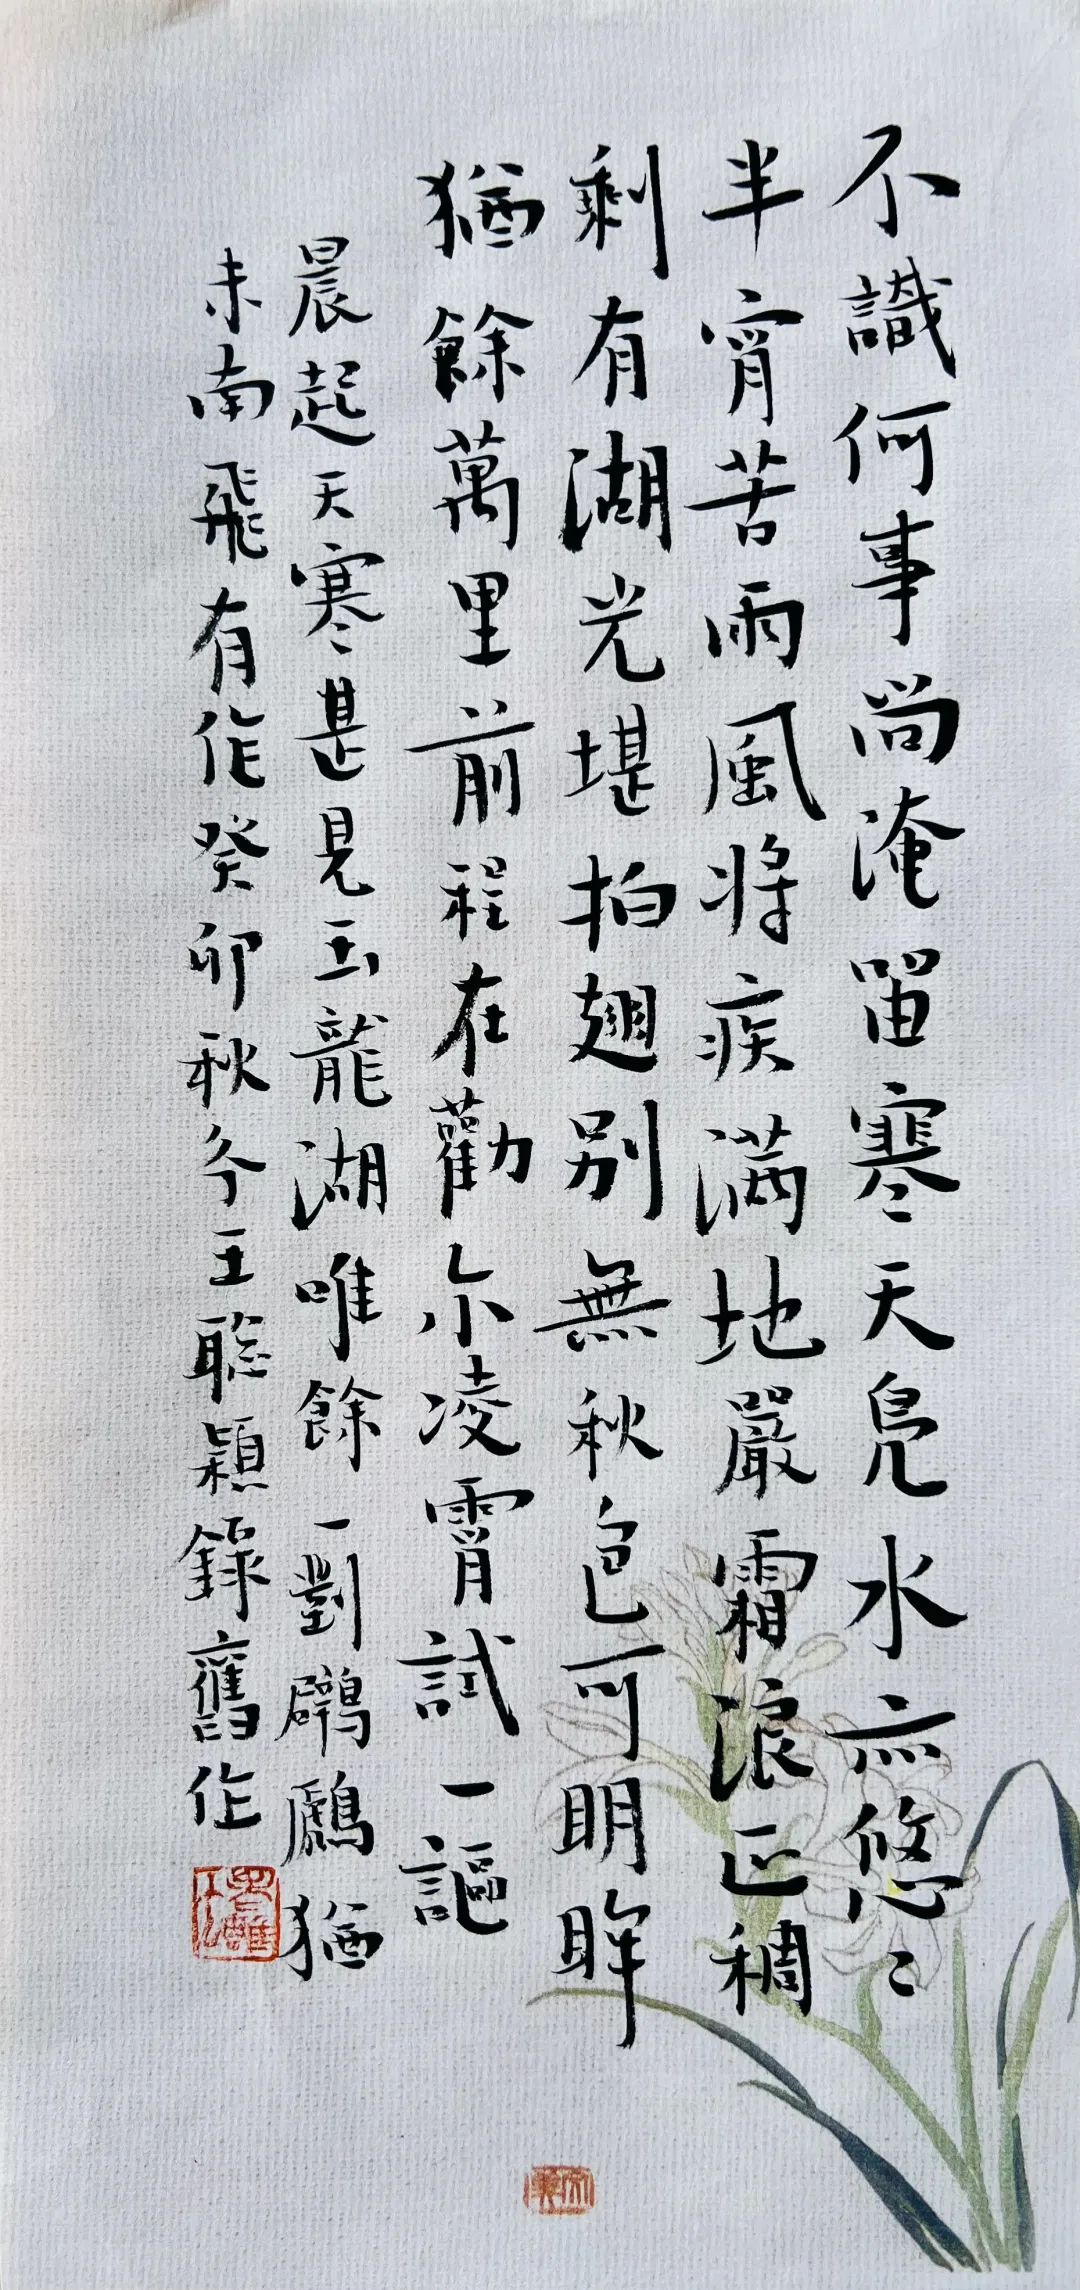 不識何事尚淹留寒天鳧水亦悠〻
半宵苦雨風將疾满地嚴霜浪正稠
剩有湖光堪拍翅别無秋色可明眸
猶餘萬里前程在勸尔凌霄試一謳
晨起天寒甚見玉龍湖唯餘一對鸊鷉猶
未南飛有作癸卯秋冬王聡穎錄舊作